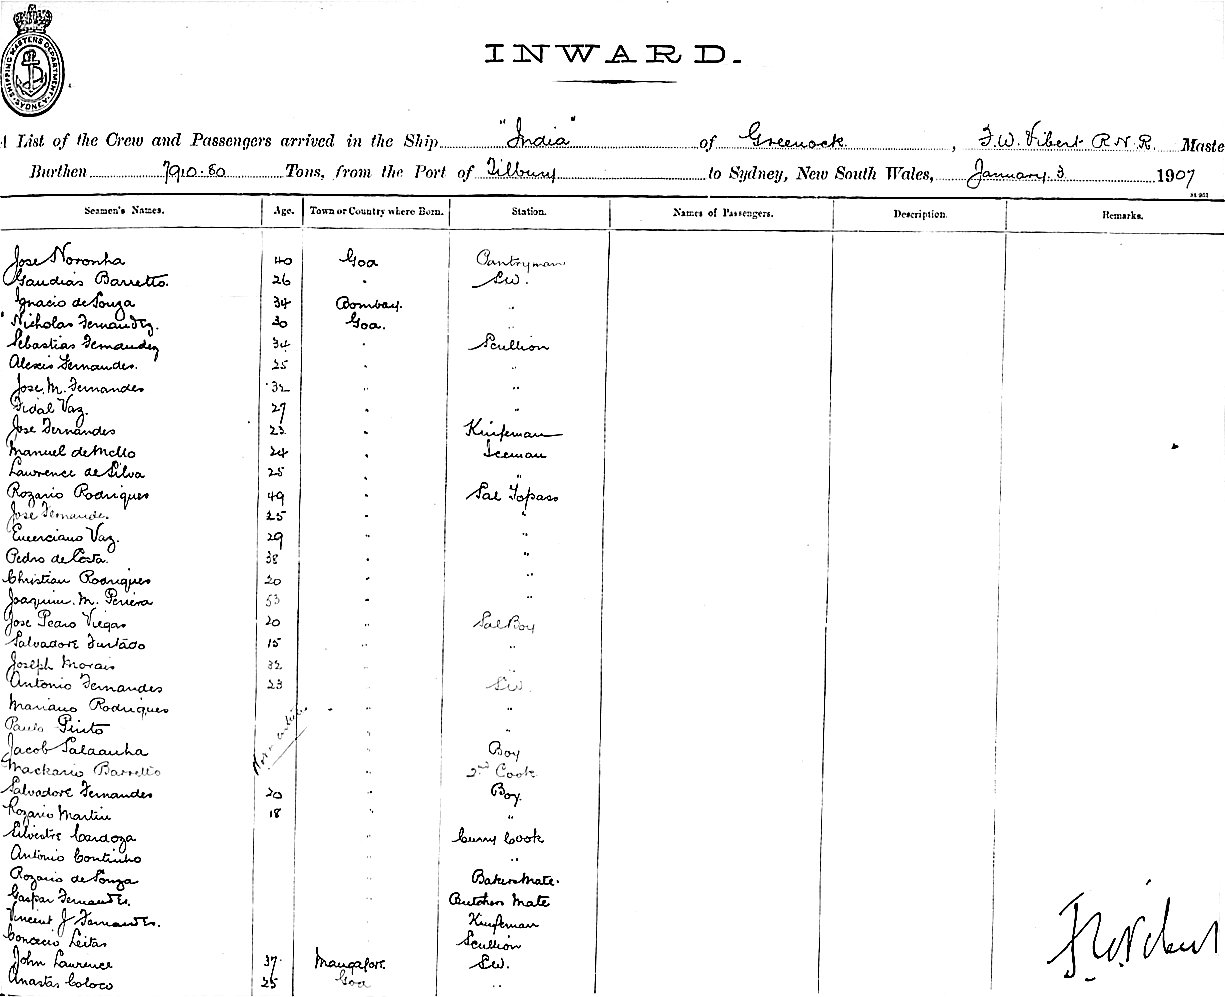 SHIPPING MASTERS DEPARTMENT SYDNEY
INWARD.
A List of the Crew and Passengers arrived in the Ship "India" of Greenock, F. W. Vibert R.N.R. Maste
Burthen 7910.80 Tons, from the Port of Tilbury to Sydney, New South Wales, January 3 1907
Seamen's Names. Age. Town or Country where Born. Station. Names of Passengers. Description. Remarks.
Jose Noronha 40 Goa Pantryman
Gaudias Barretto. 26 " Sw.
Ignacio de Souza 34 Bombay. "
Nicholas Fernandez. 30 Goa. "
Sebastias Fernandez 34 " Scullion
Alexis Fernandes. 25 " "
Jose. M. Fernandes 32 " "
Fidal Vaz. 27 " "
Jose Fernandes 23 "
Manuel de Mello 24 " Iceman
Lawrence de Silva 25 " "
Rozario Rodriques 49 " Sal Topass
Jose Fernandes 25 " "
Vaz. 29 " "
Pedro de Costa. 38 " "
Christian Rodriques 20 " "
Joaquim. M. Periera 53 " "
Jose Pedro Viegas 20 " Sal Boy
Salvadore Furtado 15 " "
Joseph Morais 32 " "
Antonio Fernandes 23 " Sw.
Mariano Rodriques " "
Paulo Pinto " "
Jacob Saldanha " Boy
Mackario Barretto " 2nd Cook
Salvadore Fernandes 20 " Boy.
Rozario Martin 18 " "
Silvestre Cardoza " Curry Cook
Antonio Continho " "
Rozario de Souza " Bakers Mate.
Gaspar Fernandes. " Butchers Mate
Vincent J Fernandes. "
Leitas Scullion
John Lawrence 37 Mangalore. Sw.
Anastas Coloco 25 Goa "
F W Vibert